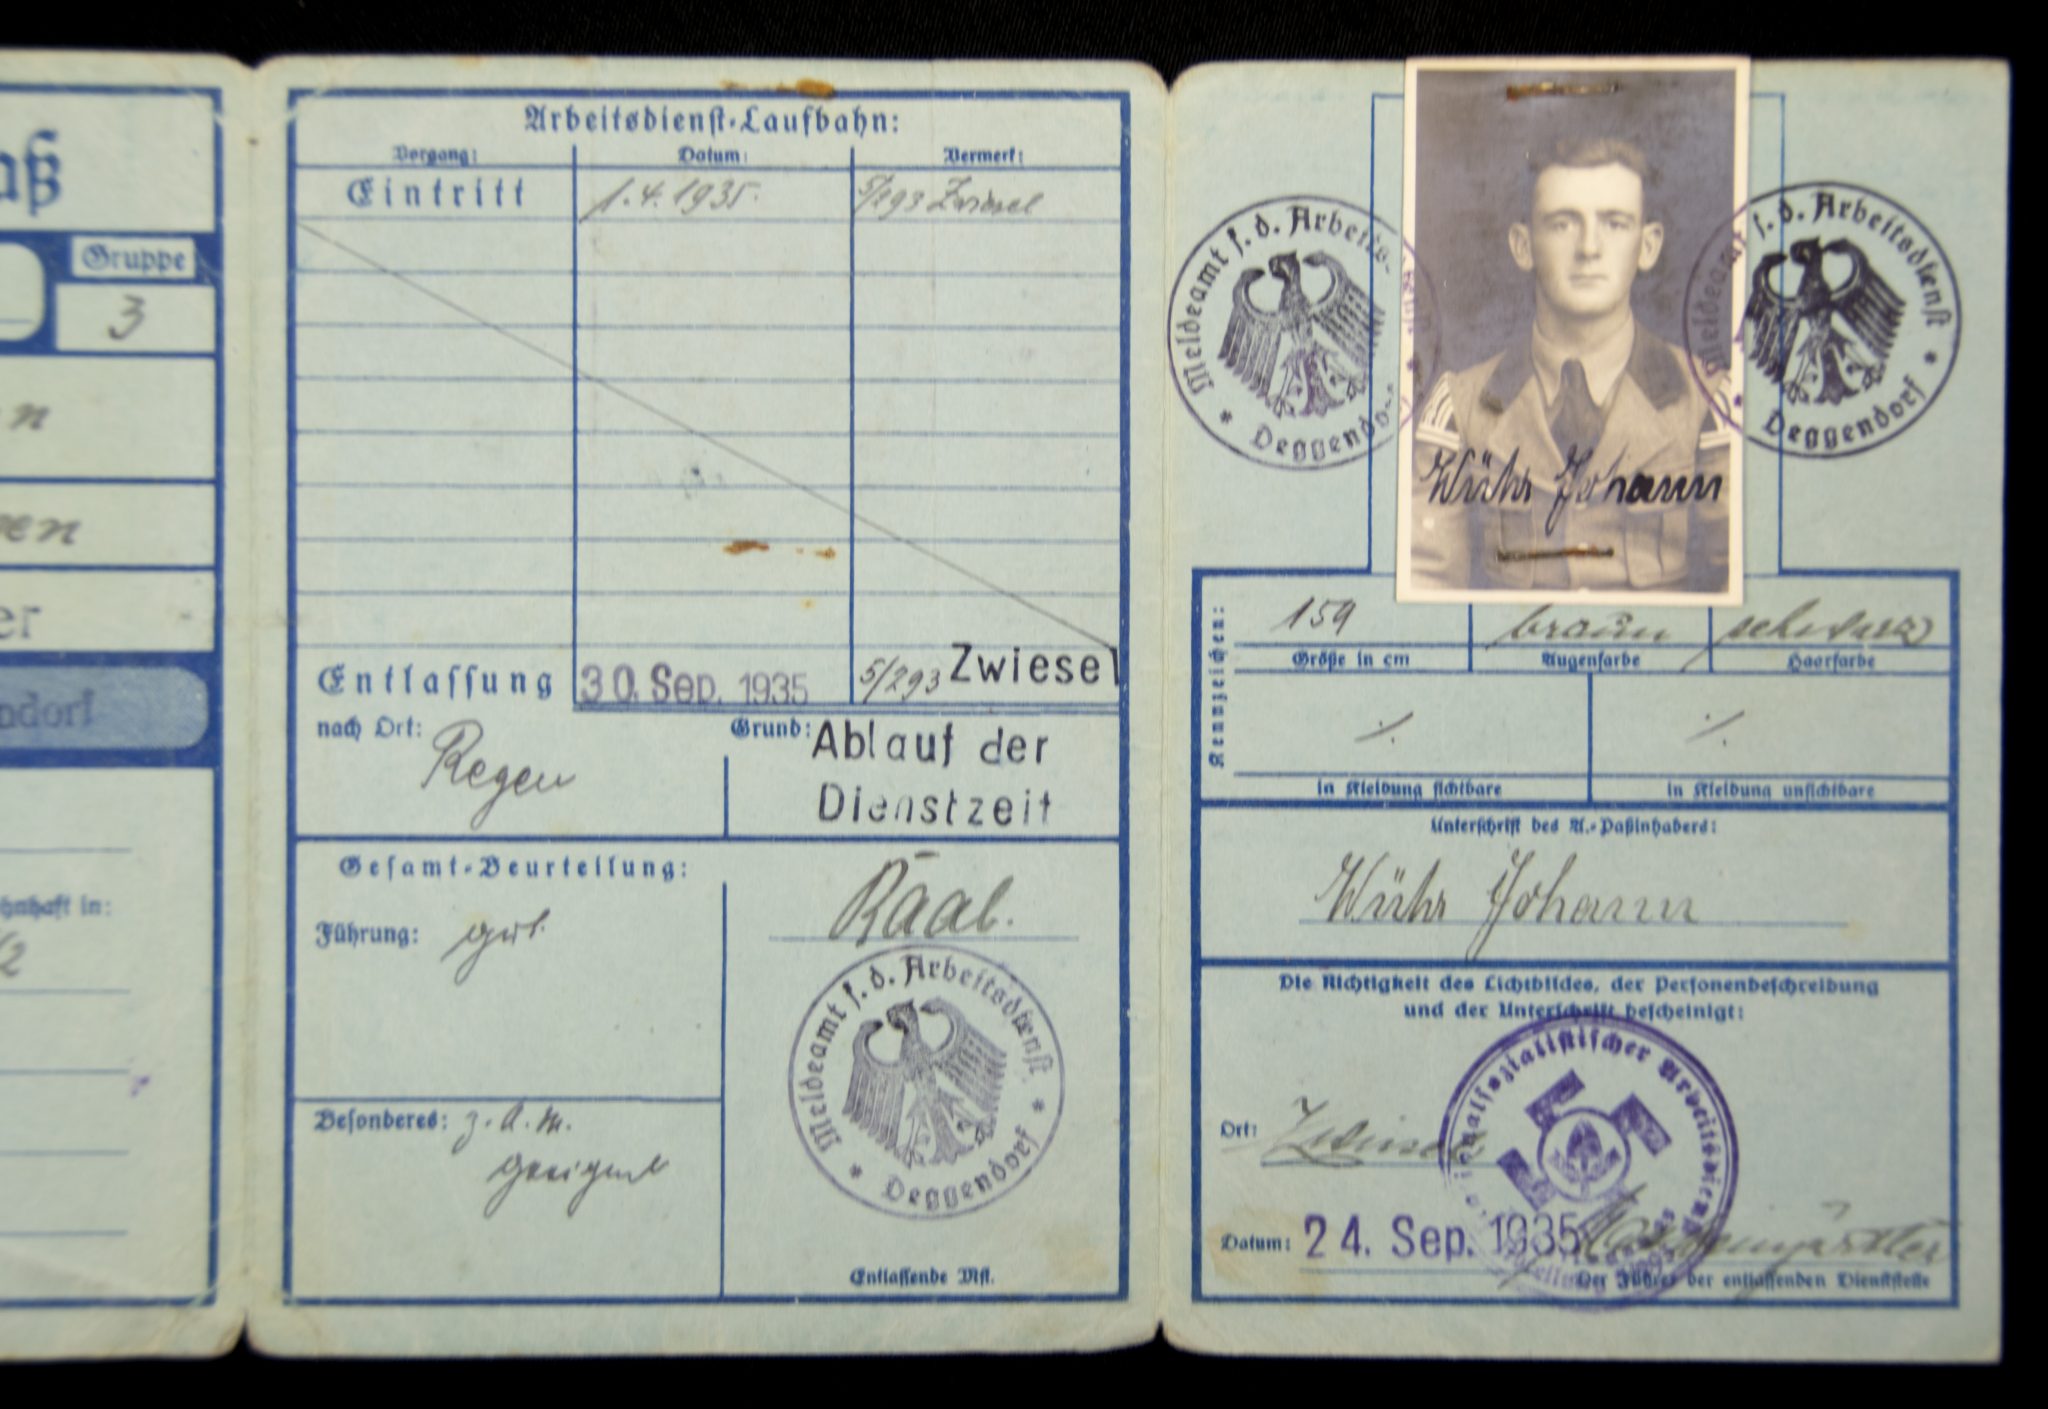 aß
Gruppe
3
n
en
er
ndorf
hnhaft in:
/2
Arbeitsdienst-Laufbahn:
Vorgang: Datum: Vermerk:
Eintritt 1.4.1935. 5/293 Zwiesel
Entlassung 30. Sep. 1935 5/293 Zwiesel
nach Ort: Regen Grund: Ablauf der
Dienstzeit
Gesamt-Beurteilung:
Führung: gut.
Raab.
Meldeamt f. d. Arbeitsdienst
* Deggendorf *
Besonderes: z. A. M.
geeignet
Entlassende Mst.
Meldeamt f. d. Arbeits-
* Deggendo
Meldeamt f. d. Arbeitsdienst
* Deggendorf *
Wühr Johann
Kennzeichen:
159 braun schwarz
Größe in cm Augenfarbe Haarfarbe
./. ./.
in Kleidung sichtbare in Kleidung unsichtbare
Unterschrift des A.-Paßinhabers:
Wühr Johann
Die Richtigkeit des Lichtbildes, der Personenbeschreibung
und der Unterschrift bescheinigt:
Nationalsozialistischer Arbeitsdienst
Ort: Zwiesel
Datum: 24. Sep. 1935
Der Führer der entlassenden Dienststelle